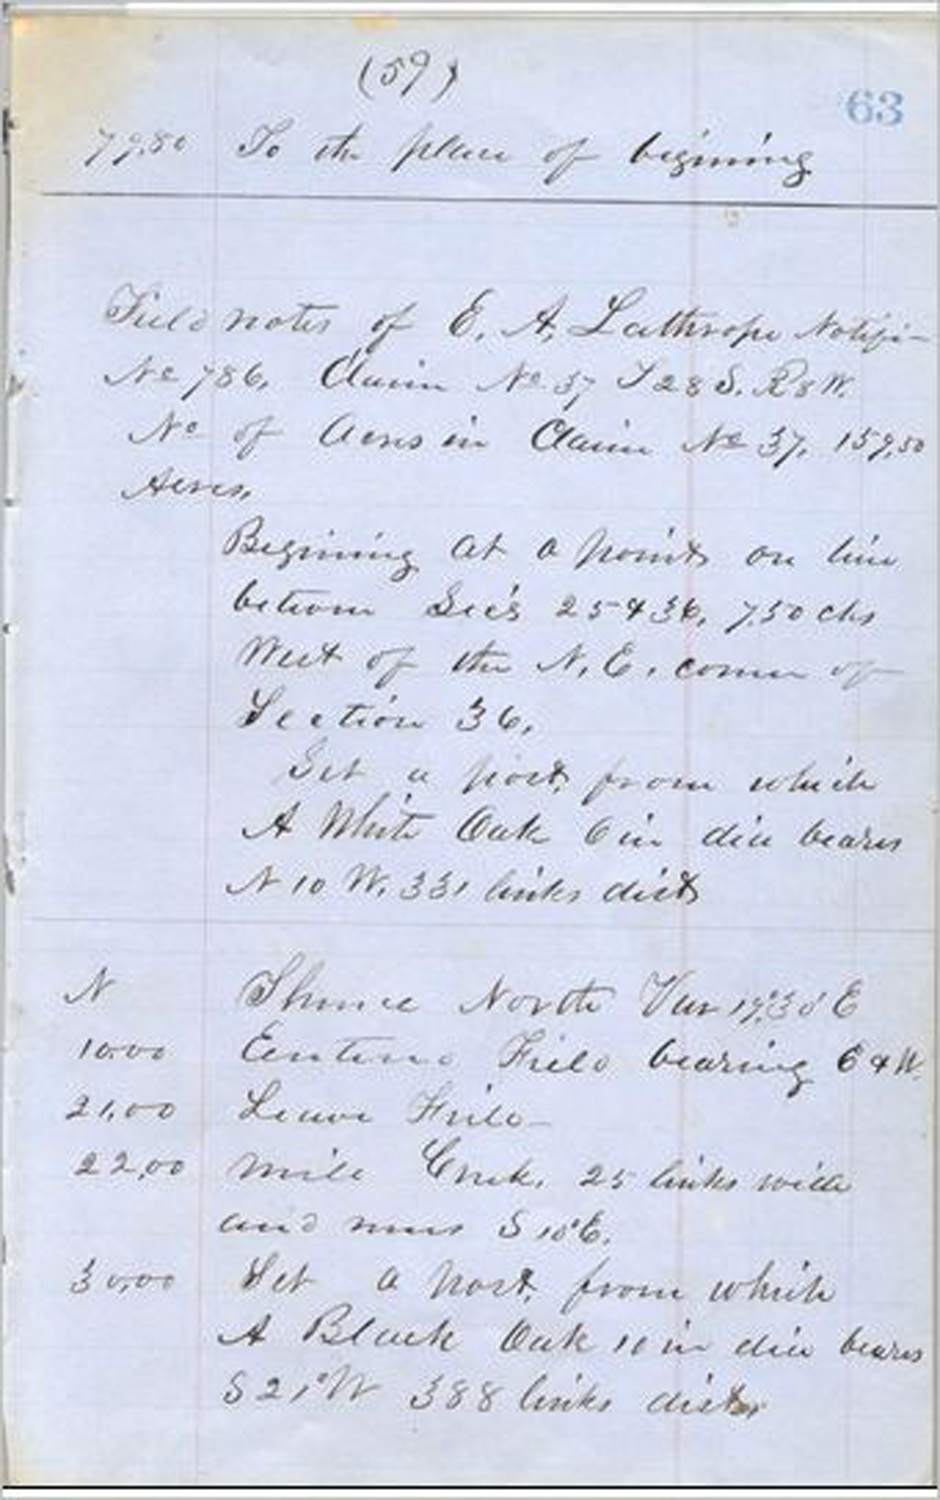 (59)
63
79.80 To the place of begining
Field notes of E. A. Lathrope Notifi-
No 786. Claim No 37 T 28 S. R 8 W.
No of Acres in Claim No 37, 159,50
Acres,
Begining at a point on line
betwen Sec's 25 & 36, 7.50 chs
West of the N. E. corner of
Section 36.
Set a post, from which
A White Oak 6 in dia beares
N 10 W. 331 links dist
N Thence North Var 19°30' E
10.00 Field bearing E & W.
21,00 Leave Field
22,00 Mill Creek. 25 links wide
and runs S 10° E.
30,00 Set a post, from which
A Black Oak 10 in dia beares
S 21° W 388 links dist,